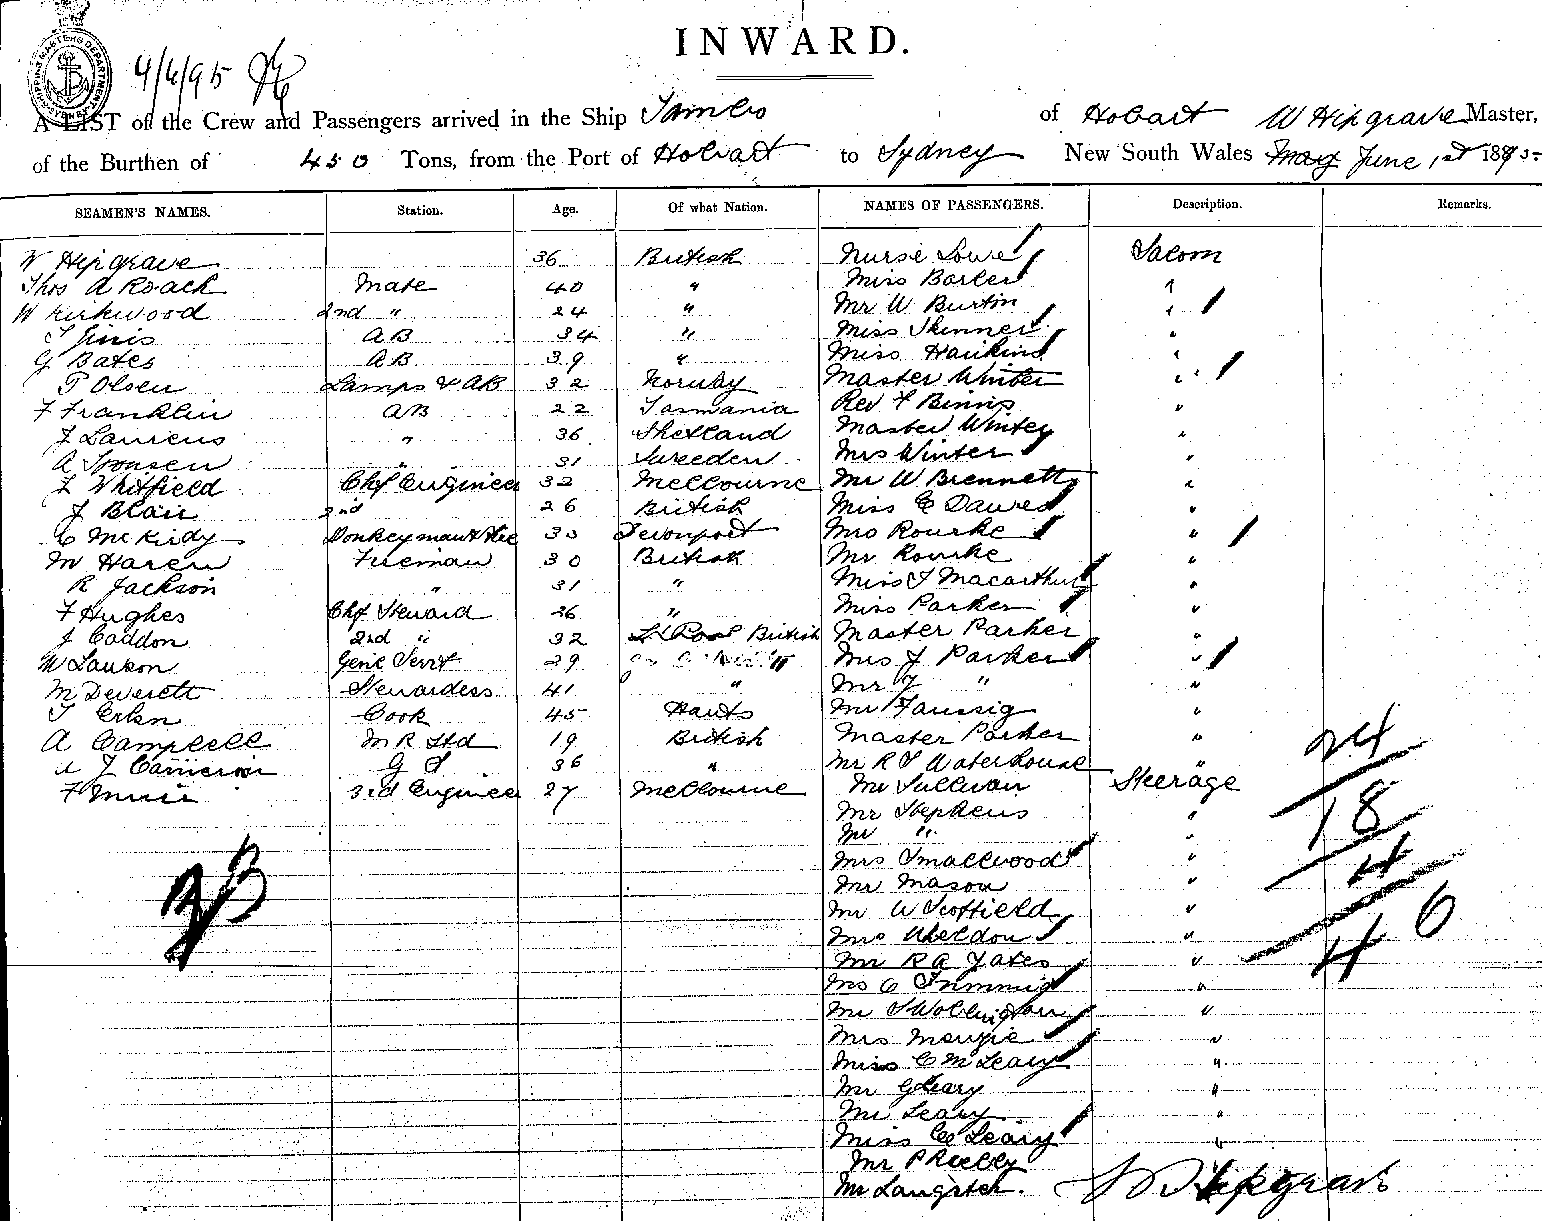 INWARD.
4/6/95
A LIST of the Crew and Passengers arrived in the Ship Tambo of Hobart W Hipgrave Master,
of the Burthen of 450 Tons, from the Port of Hobart to Sydney New South Wales May June 1st 1895
SEAMEN'S NAMES. Station. Age. Of what Nation. NAMES OF PASSENGERS. Description. Remarks.
W Hipgrave 36 British Nurse Lowe Saloon
Thos A Roach Mate 40 " Miss Barber "
W Kirkwood 2nd " 24 " Mr W Burton "
AB 34 " Miss Skinner "
G Bates AB 39 " Miss Hawkins "
P Olsen Lamps & AB 32 Norway Master Winter "
F Franklin AB 22 Tasmania Rev F Binns "
J Laurens " 36 Shetland Master Winter "
A " 31 Sweeden Mrs Winter "
J Whitfield Chf Engineer 32 Melbourne Mr W Brennett "
J Blair 2nd 26 British Miss E Dawes "
C McKirdy Donkeyman & 33 Devonport Mrs Rourke "
M Haren Fireman 30 British Mr Rourke "
R Jackson " 31 " Miss J Macarthur "
F Hughes Chf Steward 26 " Miss Parker "
J Caddon 2nd " 32 British Master Parker "
W Lawson Genl Servt 29 Mrs J Parker "
M Deverett Stewardess 41 " Mr J " "
T Cook 45 Hants Mr Faussig "
A Campbell M R Std 19 British Master Parker "
A J Cameron G S 36 " Mr R J Waterhouse "
F Muir 3rd Engineer 27 Melbourne Mr Sullivan Steerage
Mr Stephens "
Mr " "
Mrs Smallwood "
Mr Mason "
Mr W Scoffield "
Mrs Wheldon "
Mr R A Yates "
Mrs C "
Mr "
Mrs Menzie "
Miss C M Leary "
Mr G Leary "
Mr Leary "
Miss C Leary "
Mr P Reilly
Mr Langster.
24
18
4
46
W Hipgrave